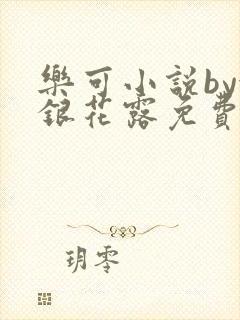 樂可小説by
銀花露免費
玥零